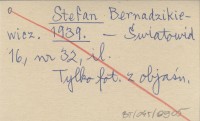 a Stefan Bernadzikie-
wicz. 1939. - Światowid
16, nr 32, il.
Tylko fot. z objaśn.